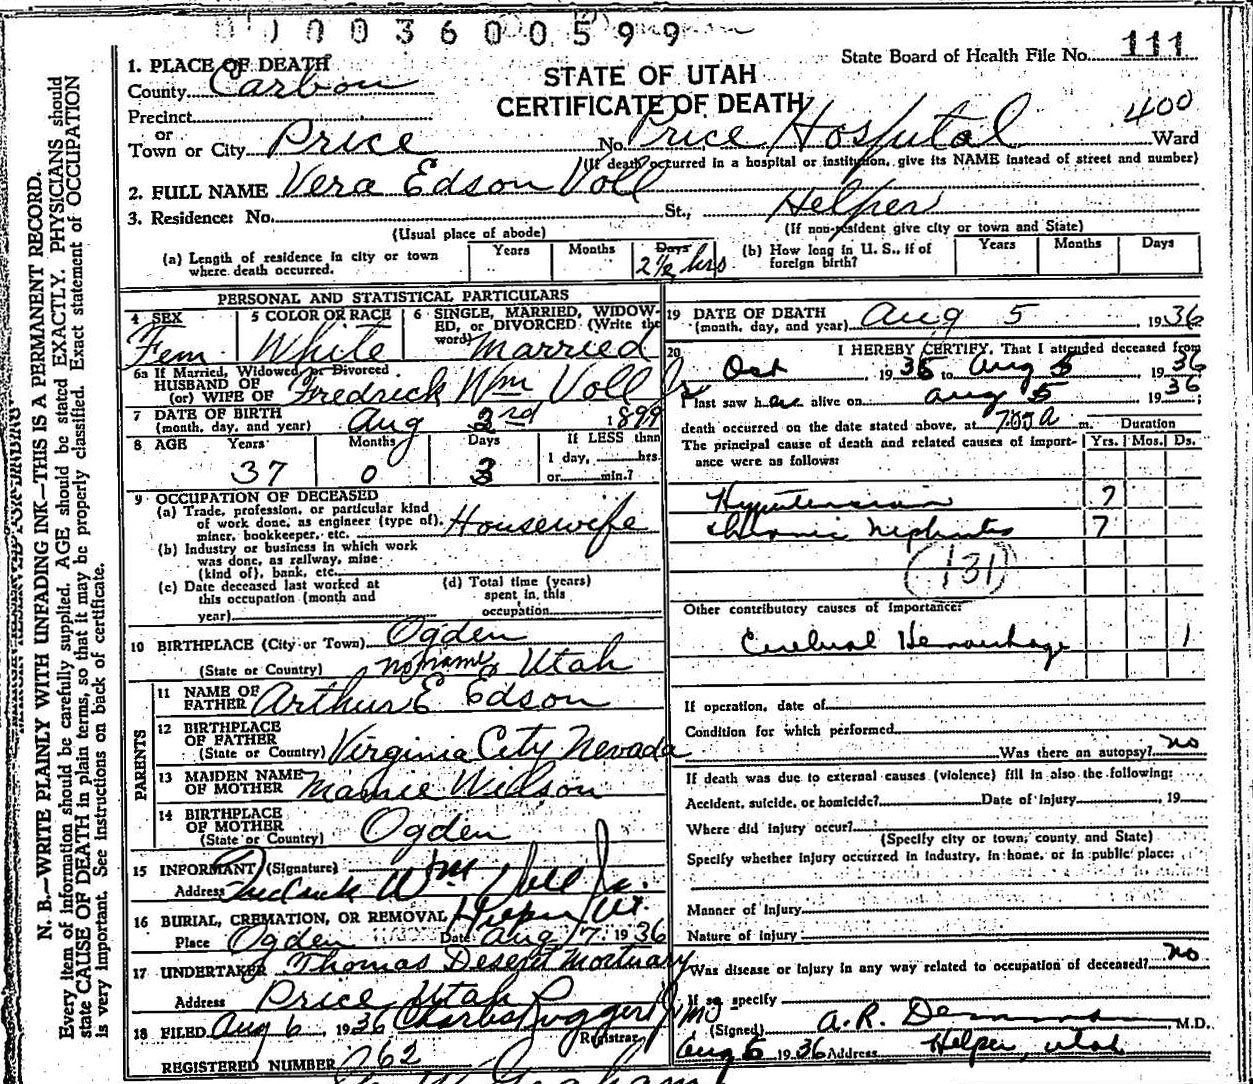 0 1 0 0 3 6 0 0 5 9 9
State Board of Health File No. 111
STATE OF UTAH
CERTIFICATE OF DEATH
400
1. PLACE OF DEATH
County Carbon
Precinct
or
Town or City Price No. Price Hospital Ward
(If death occurred in a hospital or institution, give its NAME instead of street and number)
2. FULL NAME Vera Edson Voll
3. Residence: No. St., Helper
(Usual place of abode) (If non-resident give city or town and State)
(a) Length of residence in city or town where death occurred. Years Months Days 2½ hrs
(b) How long in U. S., if of foreign birth? Years Months Days
PERSONAL AND STATISTICAL PARTICULARS
4 SEX Fem
5 COLOR OR RACE White
6 SINGLE, MARRIED, WIDOWED, or DIVORCED (Write the word) Married
6a If Married, Widowed, or Divorced
HUSBAND OF
(or) WIFE OF Fredrick Wm Voll Jr
7 DATE OF BIRTH
(month, day, and year) Aug 2rd 1899
8 AGE Years 37 Months 0 Days 3
If LESS than 1 day, hrs. or min.?
9 OCCUPATION OF DECEASED
(a) Trade, profession, or particular kind of work done, as engineer (type of), miner, bookkeeper, etc. Housewife
(b) Industry or business in which work was done, as railway, mine (kind of), bank, etc.
(c) Date deceased last worked at this occupation (month and year)
(d) Total time (years) spent in this occupation
10 BIRTHPLACE (City or Town) Ogden
(State or Country) Utah
PARENTS
11 NAME OF FATHER Arthur E Edson
12 BIRTHPLACE OF FATHER
(State or Country) Virginia City Nevada
13 MAIDEN NAME OF MOTHER Mamie Willson
14 BIRTHPLACE OF MOTHER
(State or Country) Ogden
15 INFORMANT (Signature) Fredrick Wm Voll Jr.
Address Helper, Ut.
16 BURIAL, CREMATION, OR REMOVAL
Place Ogden Date Aug 7 1936
17 UNDERTAKER Thomas Deseret Mortuary
Address Price, Utah
18 FILED Aug 6, 1936 Charles Ruggeri Jr MD
Registrar
REGISTERED NUMBER 62
19 DATE OF DEATH
(month, day, and year) Aug 5, 1936
20 I HEREBY CERTIFY, That I attended deceased from
Oct, 1935 to Aug 5 1936
I last saw her alive on Aug 5 1936;
death occurred on the date stated above, at 7:00 A m.
The principal cause of death and related causes of importance were as follows:
Duration
Yrs. Mos. Ds.
Hypertension ?
Chronic Nephritis ?
(131)
Other contributory causes of importance:
Cerebral Hemorrhage 1
If operation, date of
Condition for which performed
Was there an autopsy? no
If death was due to external causes (violence) fill in also the following:
Accident, suicide, or homicide? Date of injury, 19
Where did injury occur?
(Specify city or town, county and State)
Specify whether injury occurred in industry, in home, or in public place:
Manner of Injury
Nature of Injury
Was disease or injury in any way related to occupation of deceased? no
If so specify
(Signed) A. R. , M.D.
Aug 5 1936 Address Helper, Utah
N. B.—WRITE PLAINLY WITH UNFADING INK—THIS IS A PERMANENT RECORD.
Every item of information should be carefully supplied. AGE should be stated EXACTLY. PHYSICIANS should
state CAUSE OF DEATH in plain terms, so that it may be properly classified. Exact statement of OCCUPATION
is very important. See instructions on back of certificate.